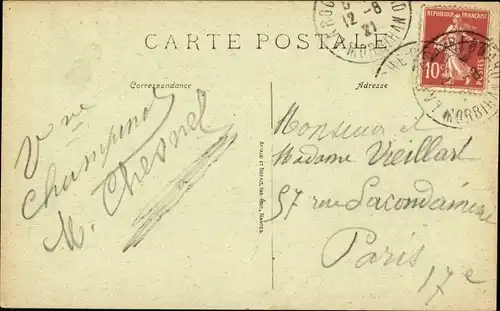 CARTE POSTALE
Correspondance
Adresse
12 - 8
21
MORBIHAN
REPUBLIQUE FRANÇAISE
10c
POSTES
MORBIHAN
Vve
Champenois
M. Chesnel
Monsieur et
Madame Vieillart
57 rue Lacondamine
Paris
17e